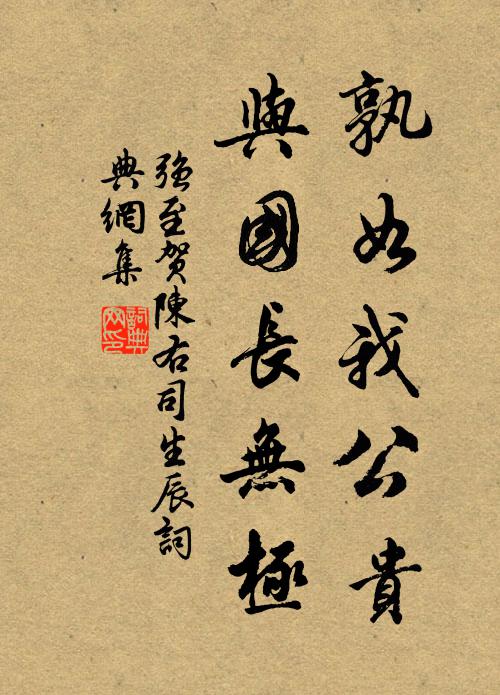 孰如我公貴
與國長無極
強至賀陳右司生辰詞
典網集
詞典網印